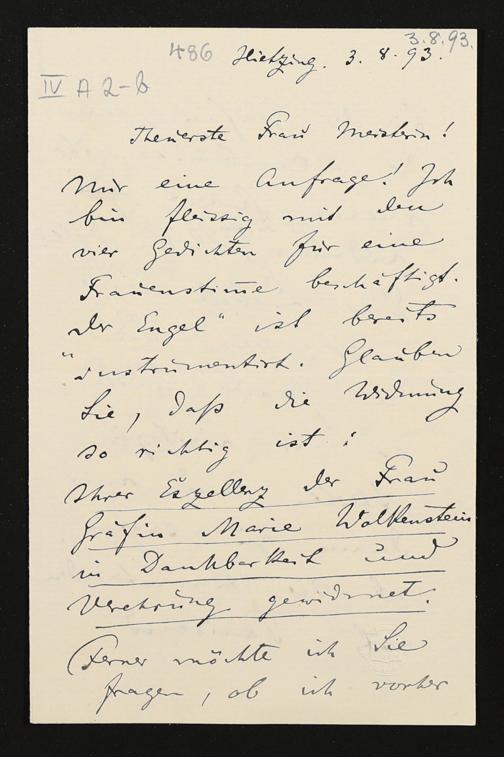 3.8.93.
486 Hietzing. 3. 8. 93.
IV A 2-b
Theuerste Frau Meisterin!
Nur eine Anfrage! Ich
bin fleissig mit den
vier Gedichten für eine
Frauenstim̅e beschäftigt.
„Der Engel“ ist bereits
instrumentirt. Glauben
Sie, daß die Widmung
so richtig ist:
Ihrer Exzellenz der Frau
Gräfin Marie Wolkenstein
in Dankbarkeit und
Verehrung gewidmet.
Ferner möchte ich Sie
fragen, ob ich vorher